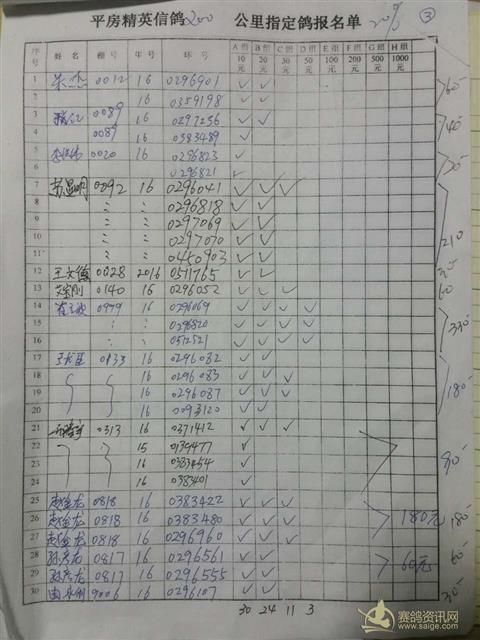 平房精英信鸽200公里指定鸽报名单 ③
序号 姓名 棚号 年号 环号 A组10元 B组20元 C组30元 D组50元 E组100元 F组200元 G组500元 H组1000元
1 朱杰 0012 16 0296901 ✓ ✓
2 16 0359198 ✓ ✓ 60-
3 0089 16 0297256 ✓ ✓
4 0089 16 0383489 ✓ 40-
5 0020 16 0296823 ✓
6 0296821 ✓ 20-
7 苏显明 0092 16 0296041 ✓ ✓ ✓
8 〃 〃 0296818 ✓ ✓
9 〃 〃 0297069 ✓ ✓
10 〃 〃 0297070 ✓ ✓ 210
11 〃 〃 0450903 ✓ ✓
12 王文德 0028 2016 0511765 ✓ ✓
13 艾宝刚 0140 16 0296052 ✓ ✓ ✓ 60
14 0979 16 0296069 ✓ ✓ ✓ ✓
15 〃 〃 0296820 ✓ ✓ ✓ ✓ 330-
16 〃 〃 0512521 ✓ ✓ ✓ ✓
17 0133 16 0296082 ✓ ✓
18 16 0296083 ✓ ✓ ✓
19 16 0296087 ✓ ✓ ✓ 180-
20 16 0093120 ✓ ✓
21 0313 16 0371412 ✓ ✓ ✓
22 15 0139477 ✓
23 16 0383454 ✓ 90-
24 16 0383401 ✓
25 赵金龙 0818 16 0383422 ✓ ✓ ✓
26 赵金龙 0818 16 0383480 ✓ ✓ ✓ 180元 180-
27 赵金龙 0818 16 0296960 ✓ ✓ ✓
28 孙彦龙 0817 16 0296561 ✓ ✓ 60元 60-
29 孙彦龙 0817 16 0296555 ✓ ✓
30 曲永利 9006 16 0296107 ✓ ✓ 30-
30 24 11 3
赛鸽资讯网
www.saige.com